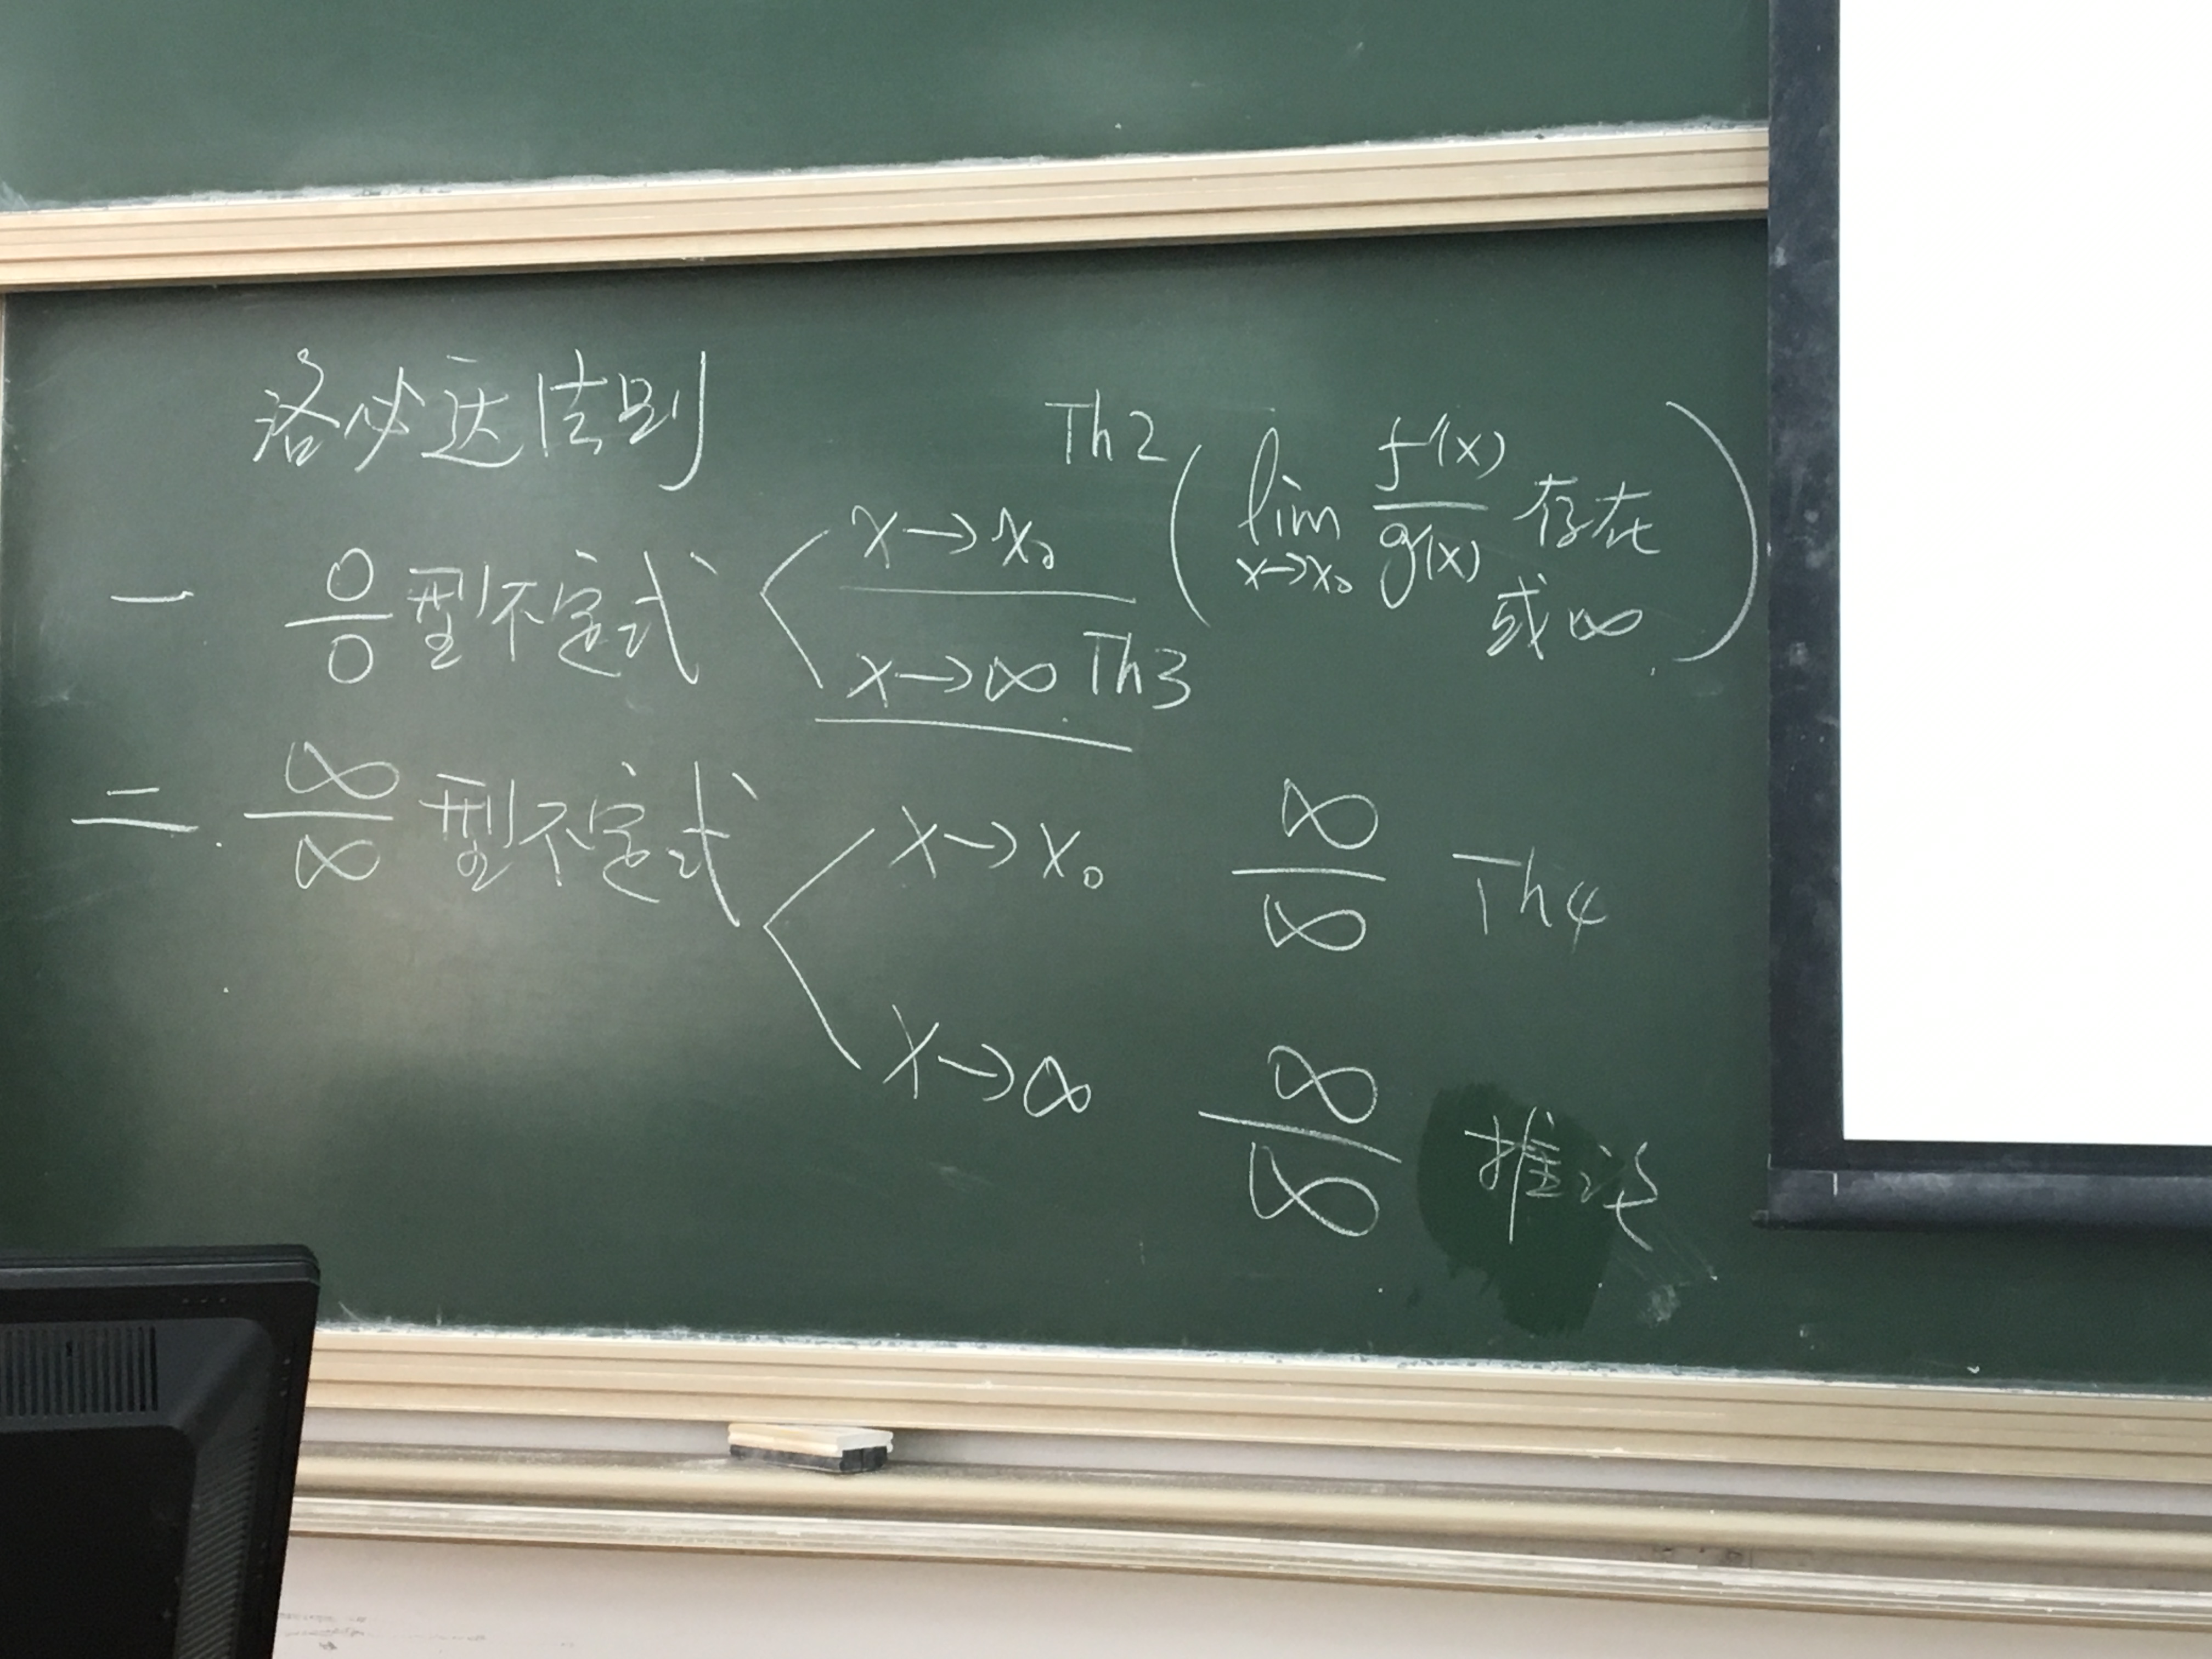 洛必达法则
一 0/0 型不定式 x→x₀ Th2 ( lim x→x₀ f'(x)/g'(x) 存在 或∞ )
x→∞ Th3
二. ∞/∞ 型不定式 x→x₀ ∞/∞ Th4
x→∞ ∞/∞ 推论